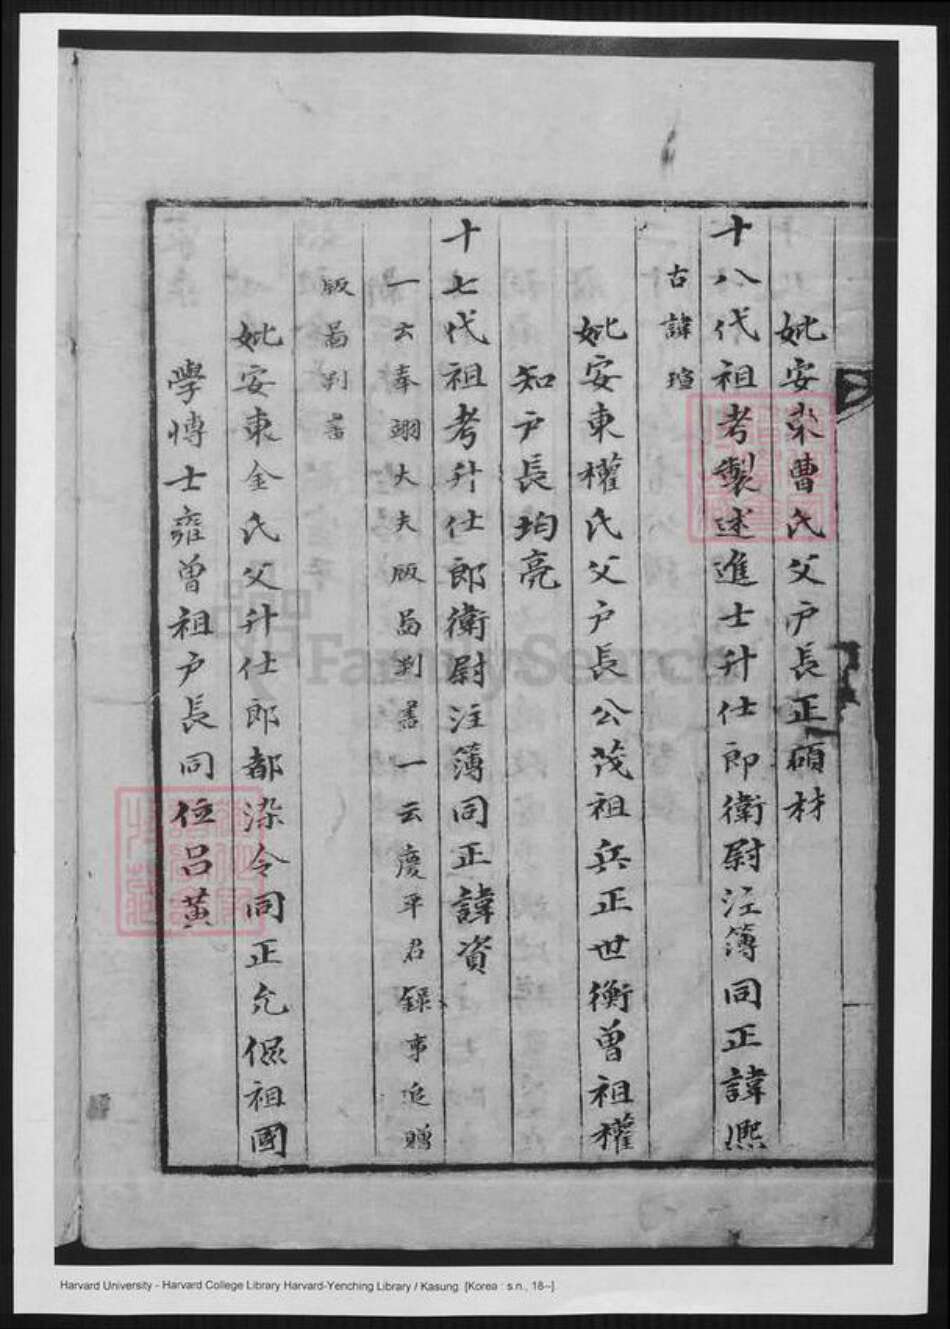 妣安東曹氏父户長正碩材
十八代祖考製述進士升仕郎衛尉注簿同正諱熙
古諱瑄
妣安東權氏父户長公茂祖兵正世衡曾祖權
知户長均亮
十七代祖考升仕郎衛尉注簿同正諱資
一云奉翊大夫版啚判書一云慶平君録事追贈
版啚判書
妣安東金氏父升仕郎都染令同正允偘祖國
學博士雍曾祖户長同位呂黃
FamilySearch
Harvard University - Harvard College Library Harvard-Yenching Library / Kasung [Korea : s.n., 18--].